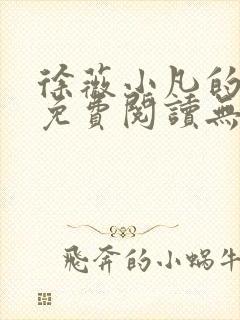 徐薇小凡的
免費閱讀無
飛奔的小蝸牛